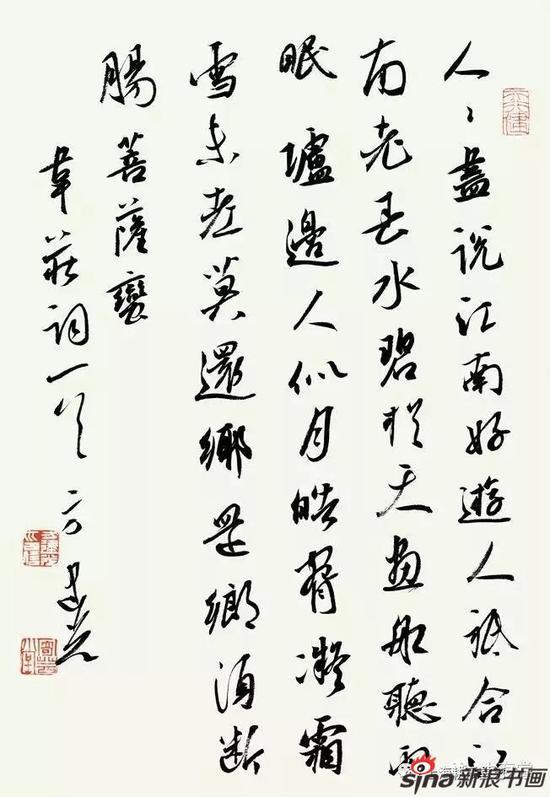 人々盡说江南好遊人祇合江
南老春水碧於天畫船聽雨
眠壚邊人似月皓腕凝霜
雪未老莫還鄉還鄉須断
腸菩薩蠻
韋莊词一首方建光
sina新浪书画